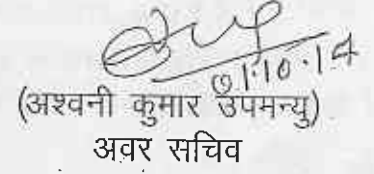 01.10.14
(अश्वनी कुमार उपमन्यु)
अवर सचिव